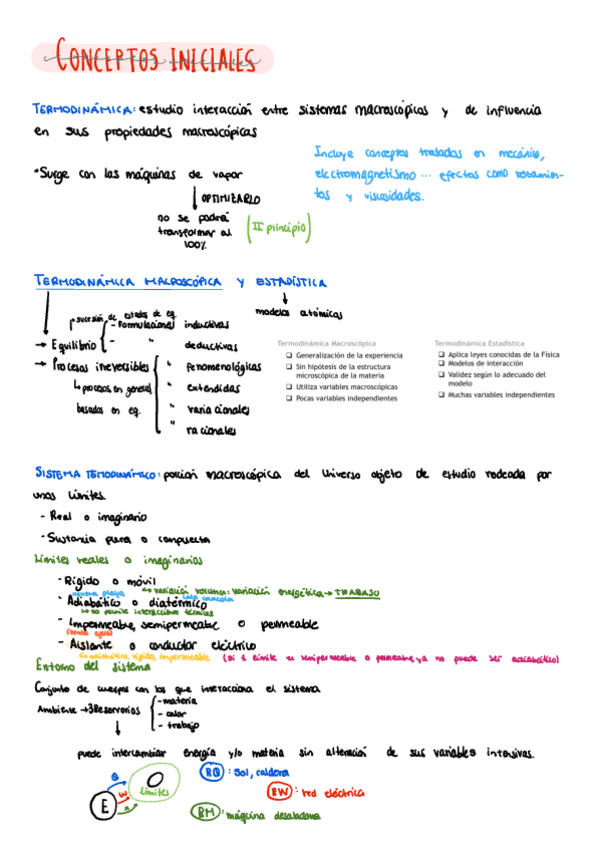 CONCEPTOS INICIALES
TERMODINÁMICA: estudio interacción entre sistemas macroscópicos y de influencia
en sus propiedades macroscópicas
Incluye conceptos tratados en mecánica,
electromagnetismo ... efectos como rozamien-
tos y viscosidades.
*Surge con las máquinas de vapor
OPTIMIZARLO
no se podrá
transformar al
100%
(II principio)
TERMODINÁMICA MACROSCÓPICA Y ESTADÍSTICA
modelos atómicas
sucesión de estados de eq.
→ Equilibrio - Formulaciones inductivas
- " deductivas
→ Procesos irreversibles " fenomenológicas
↳ procesos en general " extendidas
basados en eq. " variacionales
" racionales
Termodinámica Macroscópica
❑ Generalización de la experiencia
❑ Sin hipótesis de la estructura
microscópica de la materia
❑ Utiliza variables macroscópicas
❑ Pocas variables independientes
Termodinámica Estadística
❑ Aplica leyes conocidas de la Física
❑ Modelos de interacción
❑ Validez según lo adecuado del
modelo
❑ Muchas variables independientes
SISTEMA TEMODINÁMICO: porción macroscópica del Universo objeto de estudio rodeada por
unos límites.
- Real o imaginario
- Sustancia pura o compuesta
Límites reales o imaginarios
- Rígido o móvil
↳ variación volumen: variación energética → TRABAJO
- Adiabático o diatérmico
↳ no permite interacciones térmicas
- Impermeable, semipermeable o permeable
- Aislante o conductor eléctrico
adiabática, rígida, impermeable (si el límite es semipermeable o permeable, ya no puede ser adiabático)
Entorno del sistema
Conjunto de cuerpos con los que interacciona el sistema
Ambiente → 3 Reservorios - materia
- calor
- trabajo
puede intercambiar energía y/o materia sin alteración de sus variables intensivas.
Q
W
E
Límites
BQ : Sol, caldera
BW : red eléctrica
BM : máquina desaladora